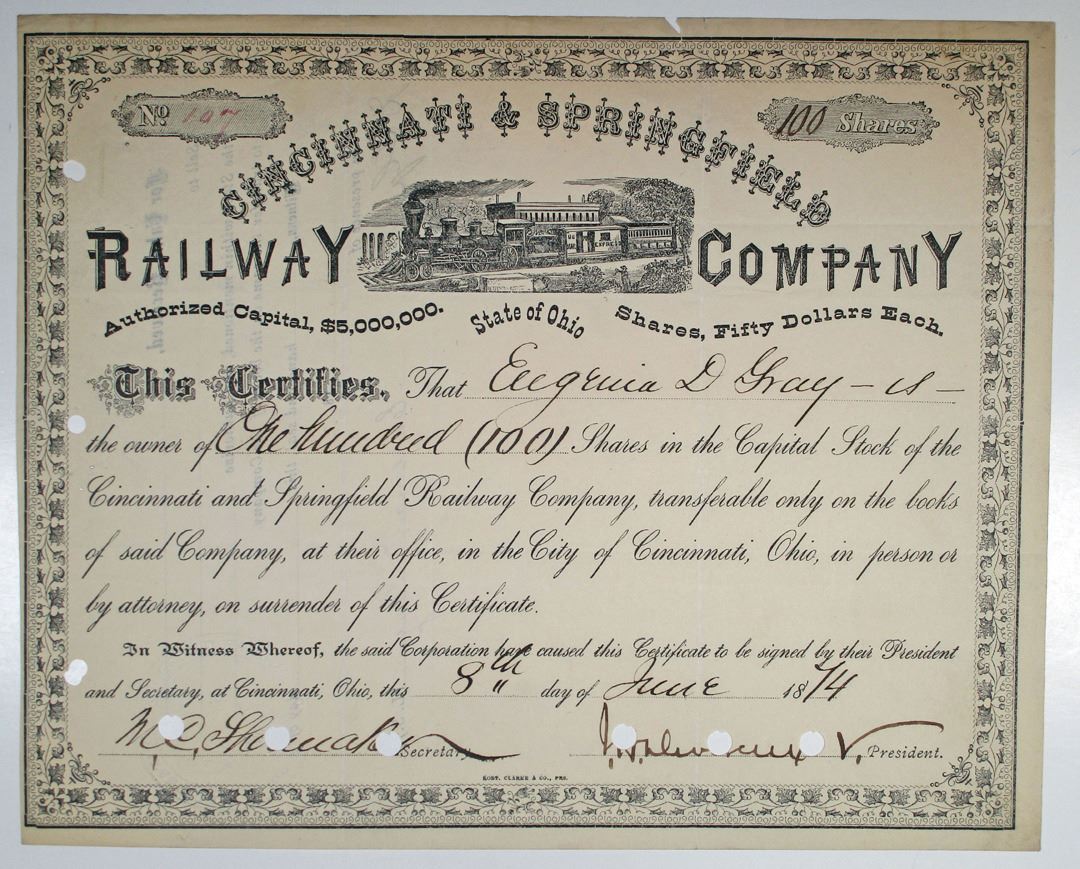 No 107
100 Shares
CINCINNATI & SPRINGFIELD
RAILWAY COMPANY
Authorized Capital, $5,000,000. State of Ohio Shares, Fifty Dollars Each.
This Certifies, That Eugenia D Gray – is –
the owner of One hundred (100) Shares in the Capital Stock of the
Cincinnati and Springfield Railway Company, transferable only on the books
of said Company, at their office, in the City of Cincinnati, Ohio, in person or
by attorney, on surrender of this Certificate.
In Witness Whereof, the said Corporation have caused this Certificate to be signed by their President
and Secretary, at Cincinnati, Ohio, this 8th day of June 1874
M.C. Shoemaker Secretary V. President.
ROBT. CLARKE & CO., PRS.